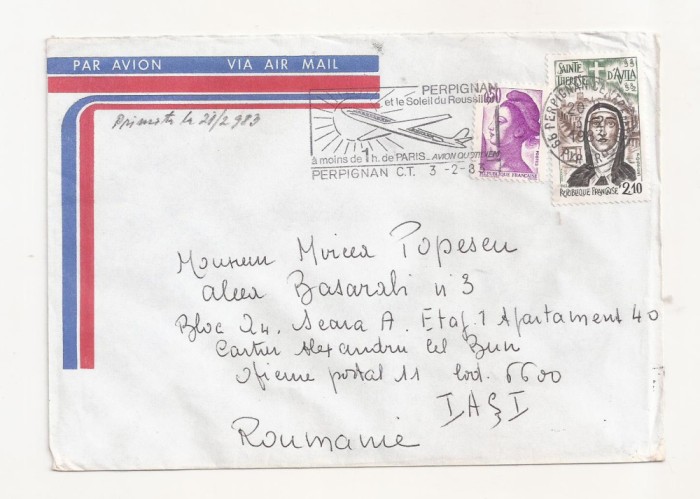 PAR AVION VIA AIR MAIL
Primită le 28/2 983
PERPIGNAN
et le Soleil du Roussillon
à moins de 1 h. de PARIS_ AVION QUOTIDIEN
PERPIGNAN C.T. 3 -2-8
RÉPUBLIQUE FRANÇAISE
SAINTE THÉRÈSE D'AVILA
66 PERPIGNAN
RÉPUBLIQUE FRANÇAISE 2,10
Monsieur Mircea Popescu
aleea Basarabi n° 3
Bloc 24, Scara A. Etaj. 1 Apartament 40
Cartier Alexandru cel Bun
Oficiul postal 11 Cod. 6600
IAŞI
Roumanie